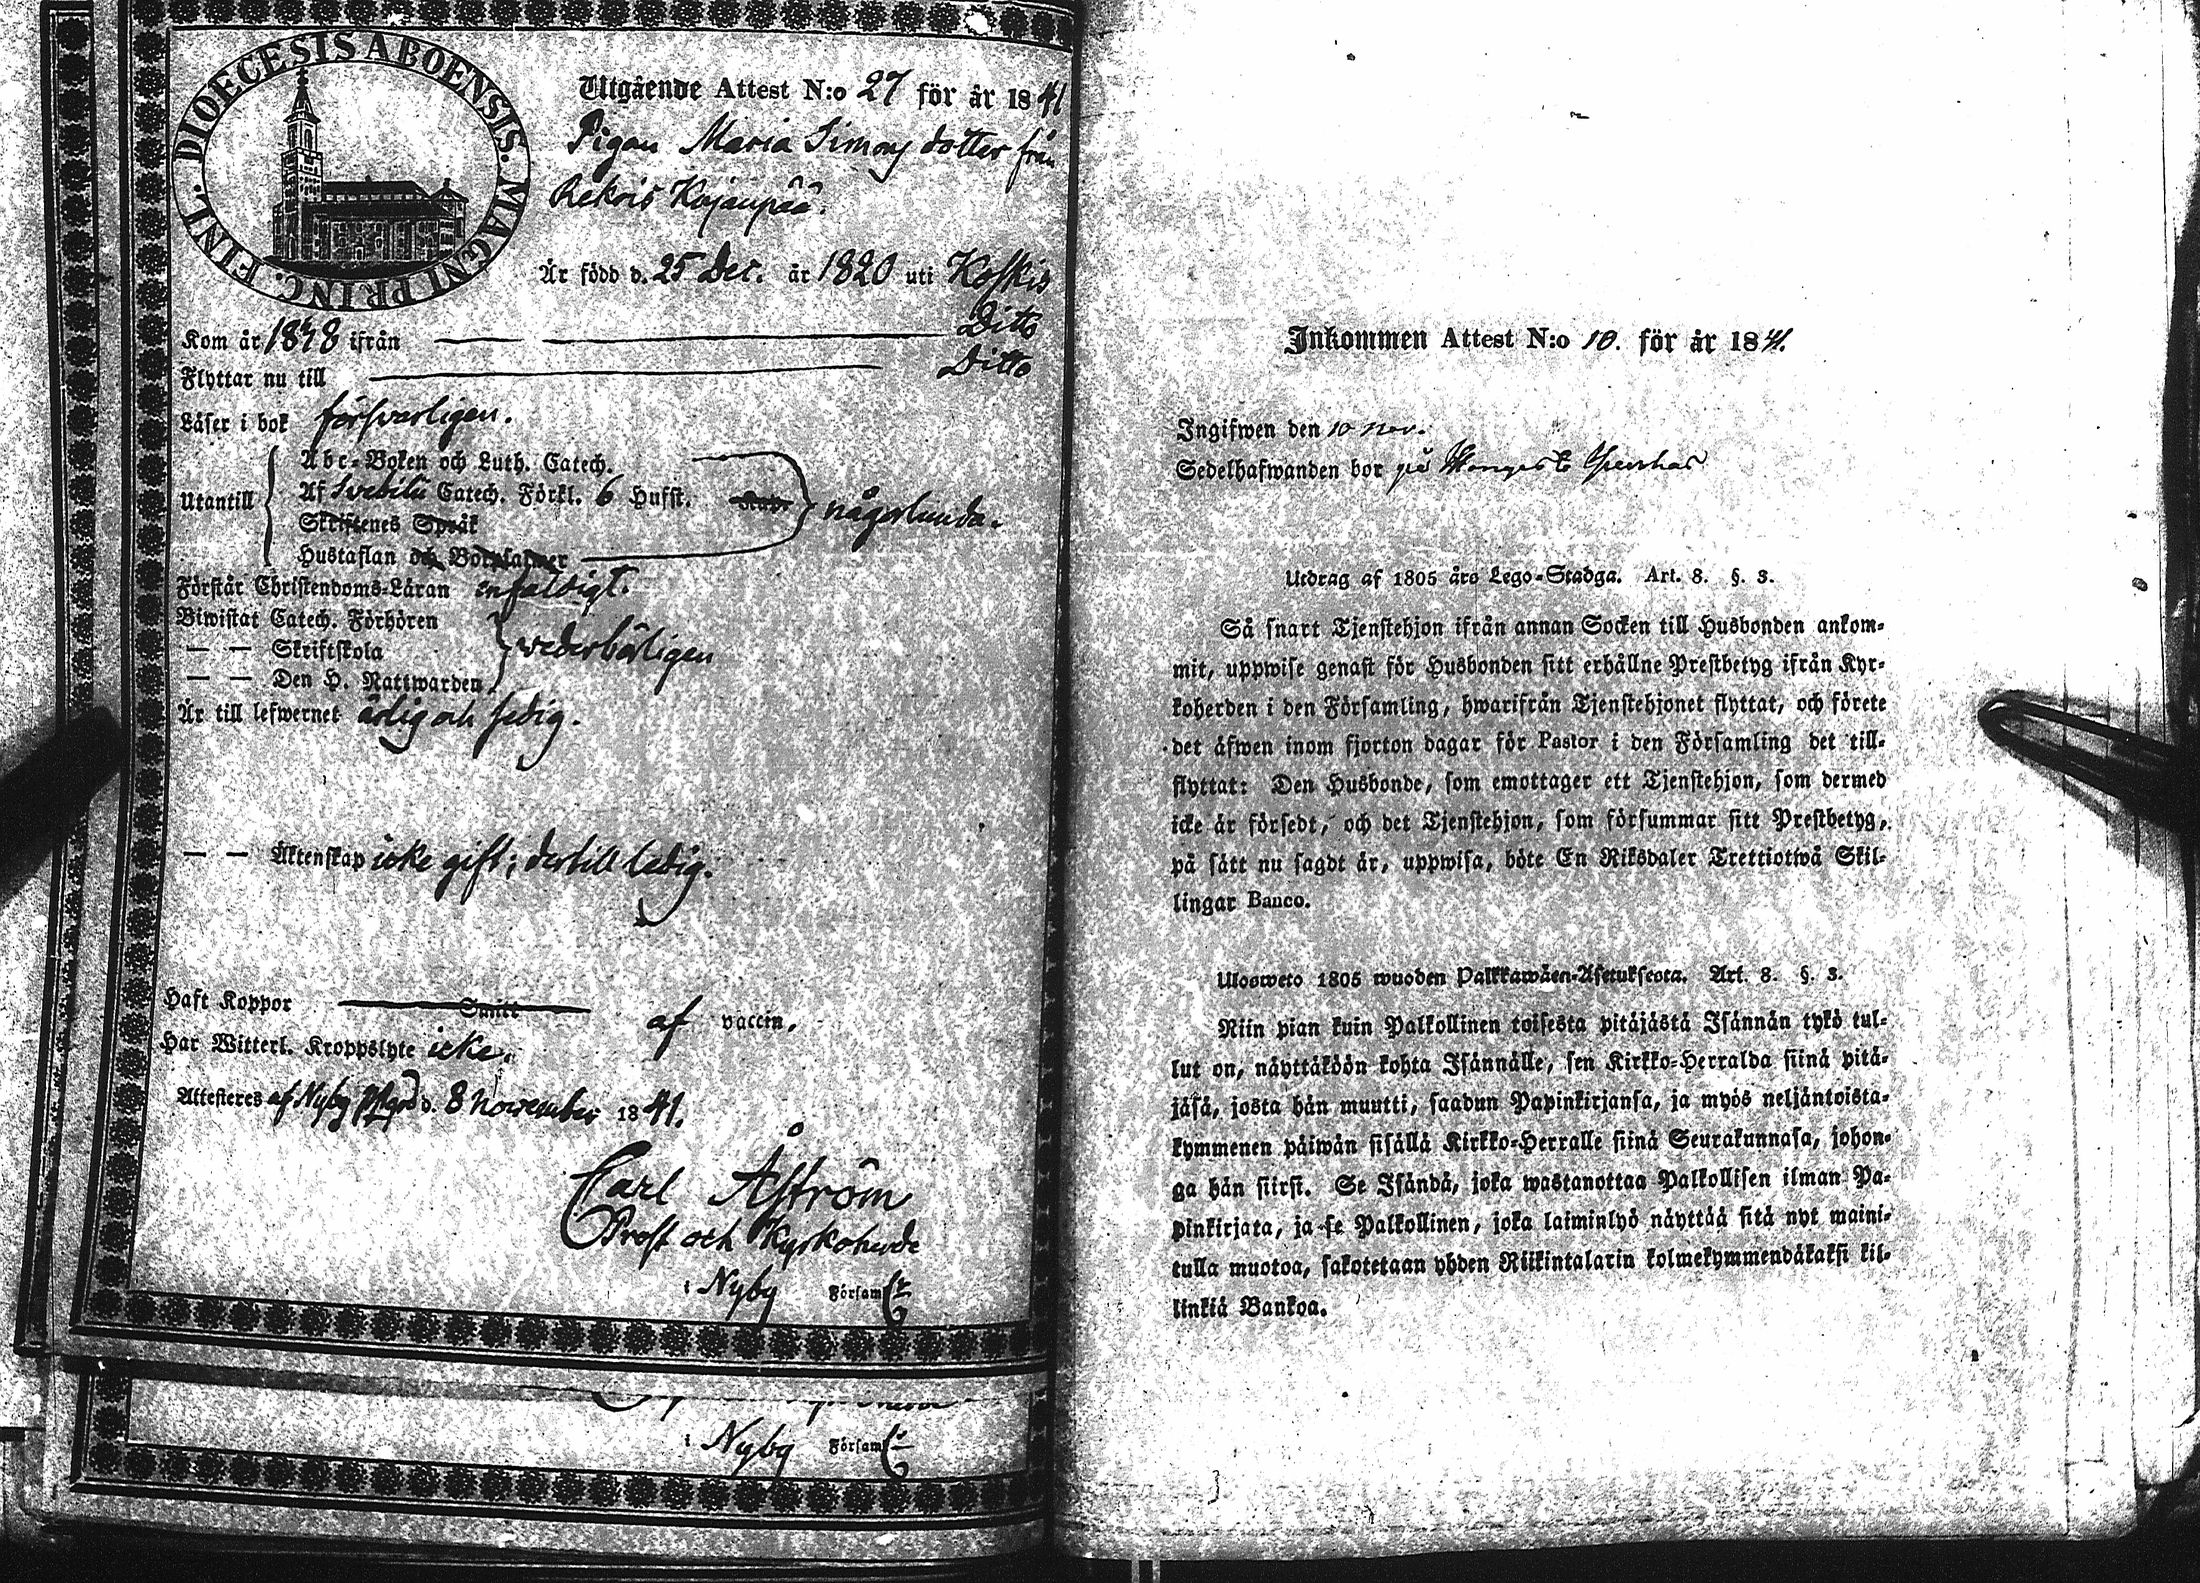 DIOECESIS ABOENSIS. MAGNI PRINC. FINL.
Utgående Attest N:o 27 för år 1841
Pigan Maria Simons dotter från
Rekois Kojanpää.
Är född d. 25 Dec. år 1820 uti Koskis
Kom år 1838 ifrån Ditto
Flyttar nu till Ditto
Läser i bok försvarligen.
Utantill
Abc-Boken och Luth. Catech.
Af Svebilii Catech. Förkl. 6 Hufst.
Skriftenes Språk
Hustaflan och Botpsalmer
någorlunda.
Förstår Christendoms-Läran enfaldigt.
Biwistat Catech. Förhören
— — Skriftskola
— — Den H. Nattwarden
vederbörligen
Är till lefwernet ärlig och sedig.
— — Äktenskap icke gift; dertill ledig.
Haft Koppor Smitt af vaccin.
Har Witterl. Kroppslyte icke.
Attesteres af Nyby pgrd d. 8 November 1841.
Carl Åström
Prost och Kyrkoherde
i Nyby Församl:
i Nyby Församl:
Inkommen Attest N:o 10. för år 1841.
Ingifwen den 10 Nov.
Sedelhafwanden bor på
Utdrag af 1805 års Lego-Stadga. Art. 8. §. 3.
Så snart Tjenstehjon ifrån annan Socken till Husbonden ankom-
mit, uppwise genast för Husbonden sitt erhållne Prestbetyg ifrån Kyr-
koherden i den Församling, hwarifrån Tjenstehjonet flyttat, och förete
det äfwen inom fjorton dagar för Pastor i den Församling det till-
flyttat: Den Husbonde, som emottager ett Tjenstehjon, som dermed
icke är försedt, och det Tjenstehjon, som försummar sitt Prestbetyg,
på sätt nu sagdt är, uppwisa, böte En Riksdaler Trettiotwå Skil-
lingar Banco.
Ulosweto 1805 wuoden Palkkawäen-Asetuksesta. Art. 8. §. 3.
Niin pian kuin Palkollinen toisesta pitäjästä Isännän tykö tul-
lut on, näyttäköön kohta Isännälle, sen Kirkko-Herralda siinä pitä-
jäsä, josta hän muutti, saadun Papinkirjansa, ja myös neljäntoista-
kymmenen päiwän sisällä Kirkko-Herralle siinä Seurakunnasa, johon-
ga hän siirsi. Se Isändä, joka wastanottaa Palkollisen ilman Pa-
pinkirjata, ja se Palkollinen, joka laiminlyö näyttää sitä nyt maini-
tulla muotoa, sakotetaan yhden Riikintalarin kolmekymmendäkaksi kil-
linkiä Bankoa.